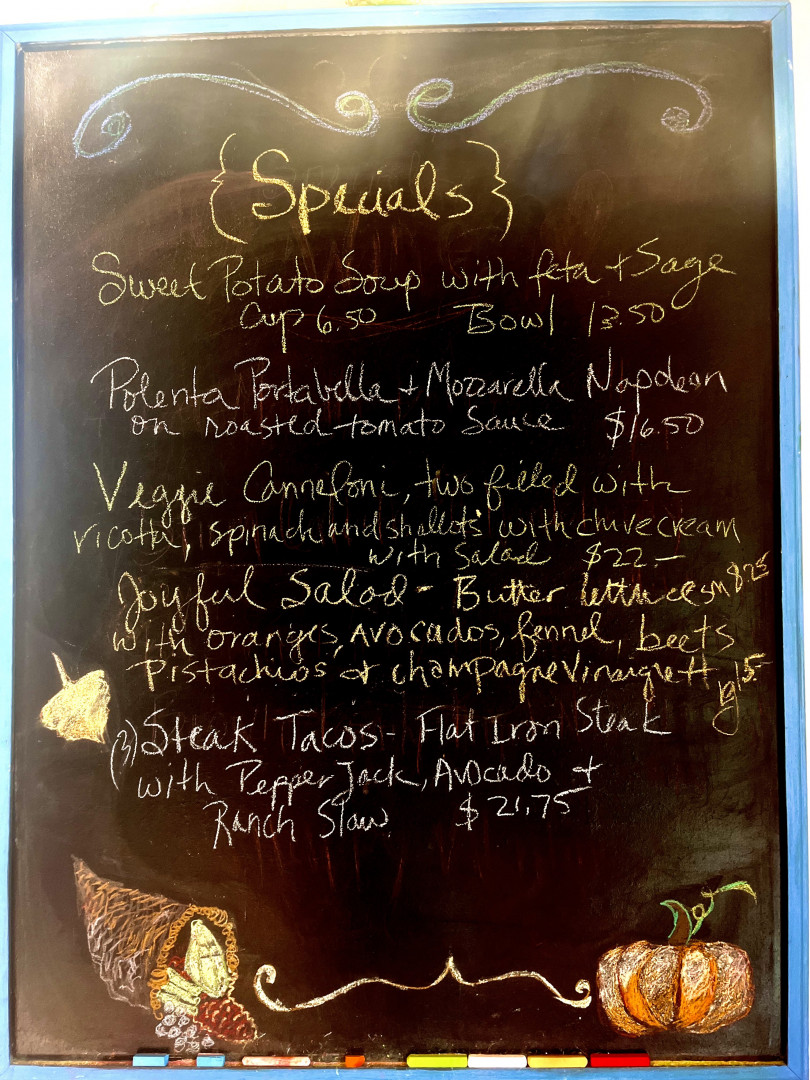 {Specials}
Sweet Potato Soup with feta + Sage
Cup 6.50 Bowl 13.50
Polenta Portabella + Mozzarella Napoleon
on roasted tomato Sauce $16.50
Veggie Canneloni, two filled with
ricotta, spinach and shallots with chive cream
with Salad $22.-
Joyful Salad - Butter lettuce sm 8.25
with oranges, Avocados, fennel, beets
Pistachios & champagne Vinaigrett lg 15.-
(3) Steak Tacos - Flat Iron Steak
with Pepper Jack, Avocado +
Ranch Slaw $21.75